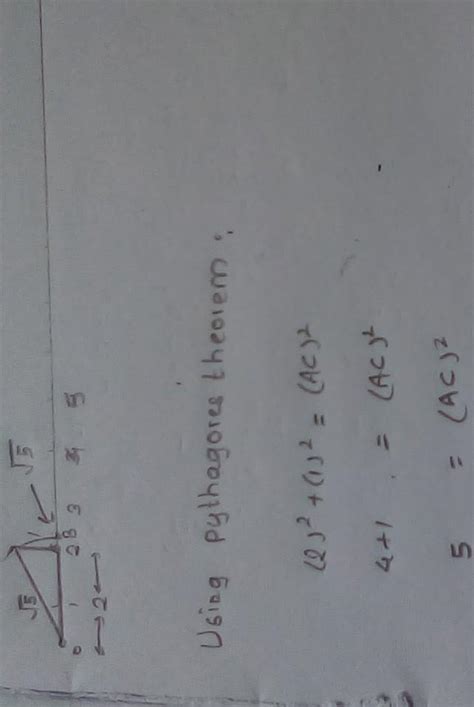 √5
√5
1
0 1 2 B 3 4 5
← 2 →
Using pythagores theorem :
(2)² + (1)² = (AC)²
4+1 = (AC)²
5 = (AC)²